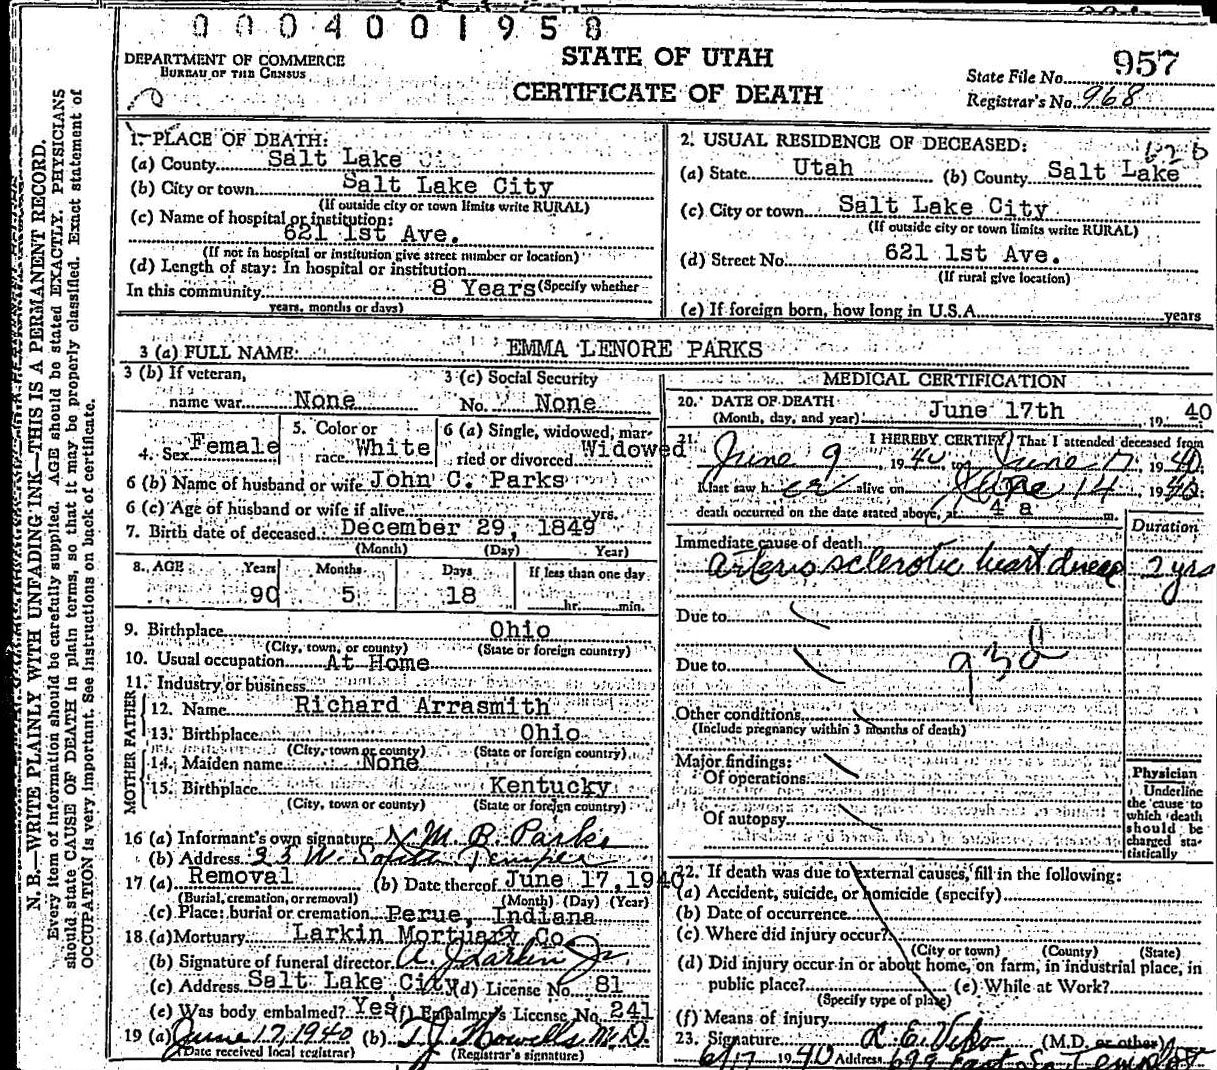 0004001958
DEPARTMENT OF COMMERCE
BUREAU OF THE CENSUS
STATE OF UTAH
CERTIFICATE OF DEATH
State File No. 957
Registrar's No. 968
N. B.—WRITE PLAINLY WITH UNFADING INK—THIS IS A PERMANENT RECORD.
Every item of information should be carefully supplied. AGE should be stated EXACTLY. PHYSICIANS
should state CAUSE OF DEATH in plain terms, so that it may be properly classified. Exact statement of
OCCUPATION is very important. See instructions on back of certificate.
1. PLACE OF DEATH:
(a) County Salt Lake
(b) City or town Salt Lake City
(If outside city or town limits write RURAL)
(c) Name of hospital or institution:
621 1st Ave.
(If not in hospital or institution give street number or location)
(d) Length of stay: In hospital or institution
In this community 8 Years (Specify whether
years, months or days)
2. USUAL RESIDENCE OF DECEASED:
(a) State Utah (b) County Salt Lake
(c) City or town Salt Lake City
(If outside city or town limits write RURAL)
(d) Street No. 621 1st Ave.
(If rural give location)
(e) If foreign born, how long in U.S.A. years
3 (a) FULL NAME: EMMA LENORE PARKS
3 (b) If veteran,
name war None
3 (c) Social Security
No. None
4. Sex Female
5. Color or
race White
6 (a) Single, widowed, mar-
ried or divorced Widowed
6 (b) Name of husband or wife John C. Parks
6 (c) Age of husband or wife if alive yrs.
7. Birth date of deceased December 29, 1849
(Month) (Day) Year)
8. AGE Years Months Days If less than one day
90 5 18 hr. min.
9. Birthplace Ohio
(City, town, or county) (State or foreign country)
10. Usual occupation At Home
11. Industry or business
FATHER
12. Name Richard Arrasmith
13. Birthplace Ohio
(City, town or county) (State or foreign country)
MOTHER
14. Maiden name None
15. Birthplace Kentucky
(City, town or county) (State or foreign country)
16 (a) Informant's own signature X M. B. Parks
(b) Address 33 W. South Temple
17 (a) Removal (b) Date thereof June 17, 1940
(Burial, cremation, or removal) (Month) (Day) (Year)
(c) Place: burial or cremation Perue, Indiana
18 (a) Mortuary Larkin Mortuary Co.
(b) Signature of funeral director A. J. Larkin Jr
(c) Address Salt Lake City (d) License No. 81
(e) Was body embalmed? Yes (f) Embalmer's License No. 241
19 (a) June 17, 1940 (b) T. J. Howells M.D.
(Date received local registrar) (Registrar's signature)
MEDICAL CERTIFICATION
20. DATE OF DEATH
(Month, day, and year) June 17th 19 40
21. I HEREBY CERTIFY, That I attended deceased from
June 9, 1940, to June 17, 1940.
I last saw her alive on June 14, 1940;
death occurred on the date stated above, at 4 a m.
Duration
Immediate cause of death
arterio sclerotic heart disease 2 yrs
Due to
Due to 93d
Other conditions
(Include pregnancy within 3 months of death)
Major findings:
Of operations
Of autopsy
Physician
Underline
the cause to
which death
should be
charged sta-
tistically
22. If death was due to external causes, fill in the following:
(a) Accident, suicide, or homicide (specify)
(b) Date of occurrence
(c) Where did injury occur?
(City or town) (County) (State)
(d) Did injury occur in or about home, on farm, in industrial place, in
public place? (e) While at Work?
(Specify type of place)
(f) Means of injury
23. Signature L. E. Viko (M.D. or other)
6/17 1940 Address 699 East So Temple St